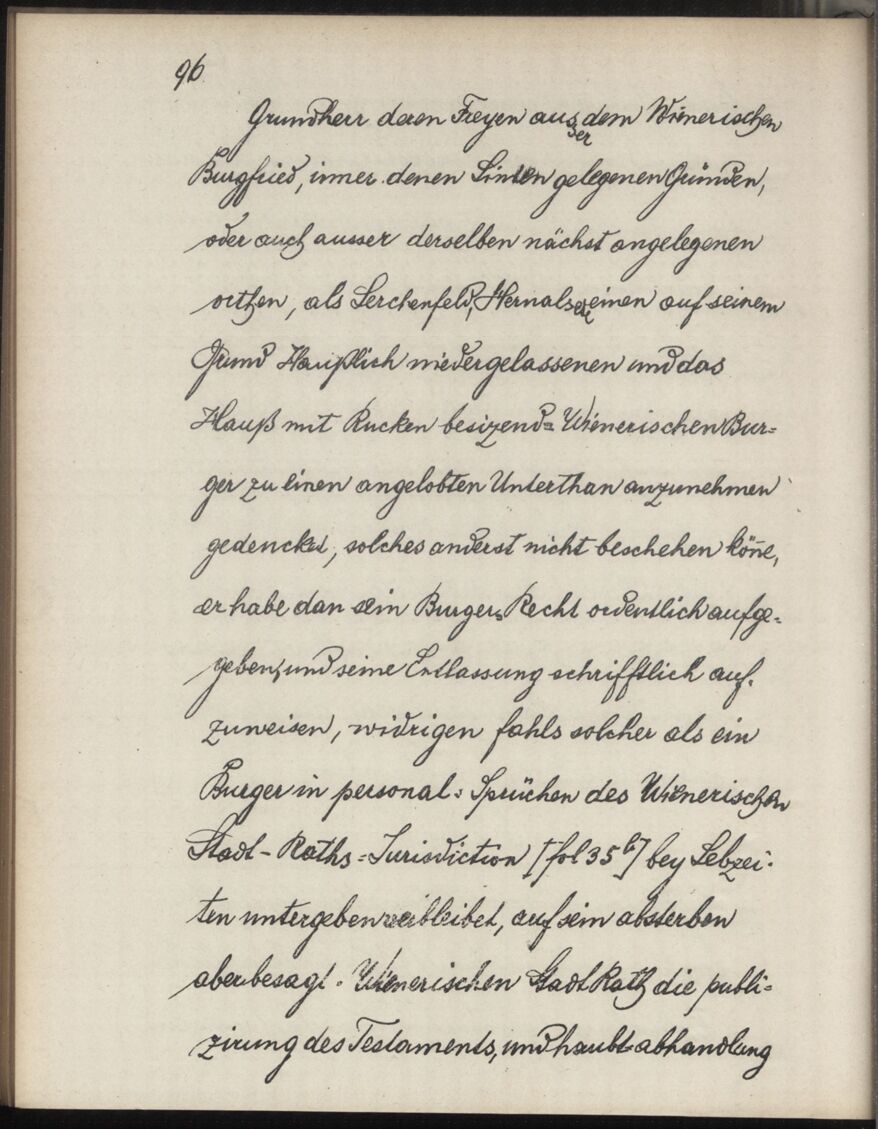 96
Grundherr deren Freyen ausser dem Wienerischen
Burgfried, inner denen Linien gelegenen Gründen,
oder auch ausser derselben nächst angelegenen
orthen, als Lerchenfeld, Hernals etc einen auf seinem
Grund Häußlich niedergelassenen und das
Hauß mit Rucken besizend= Wienerischen Bur=
ger zu einen angelobten Unterthan anzunehmen
gedencket, solches anderst nicht beschehen kön̄e,
er habe dan sein Burgers Recht ordentlich aufge=
geben, und seine Entlassung schrifftlich auf=
zuweisen, widrigen fahls solcher als ein
Burger in personal=Sprüchen des Wienerischen
Stadt-Raths=Jurisdiction [fol 35 b] bey Lebzei=
ten untergeben verbleibet, auf sein absterben
aber besagt=Wienerischen Stadt Rath die publi=
zirung des Testaments, und haubt abhandlung